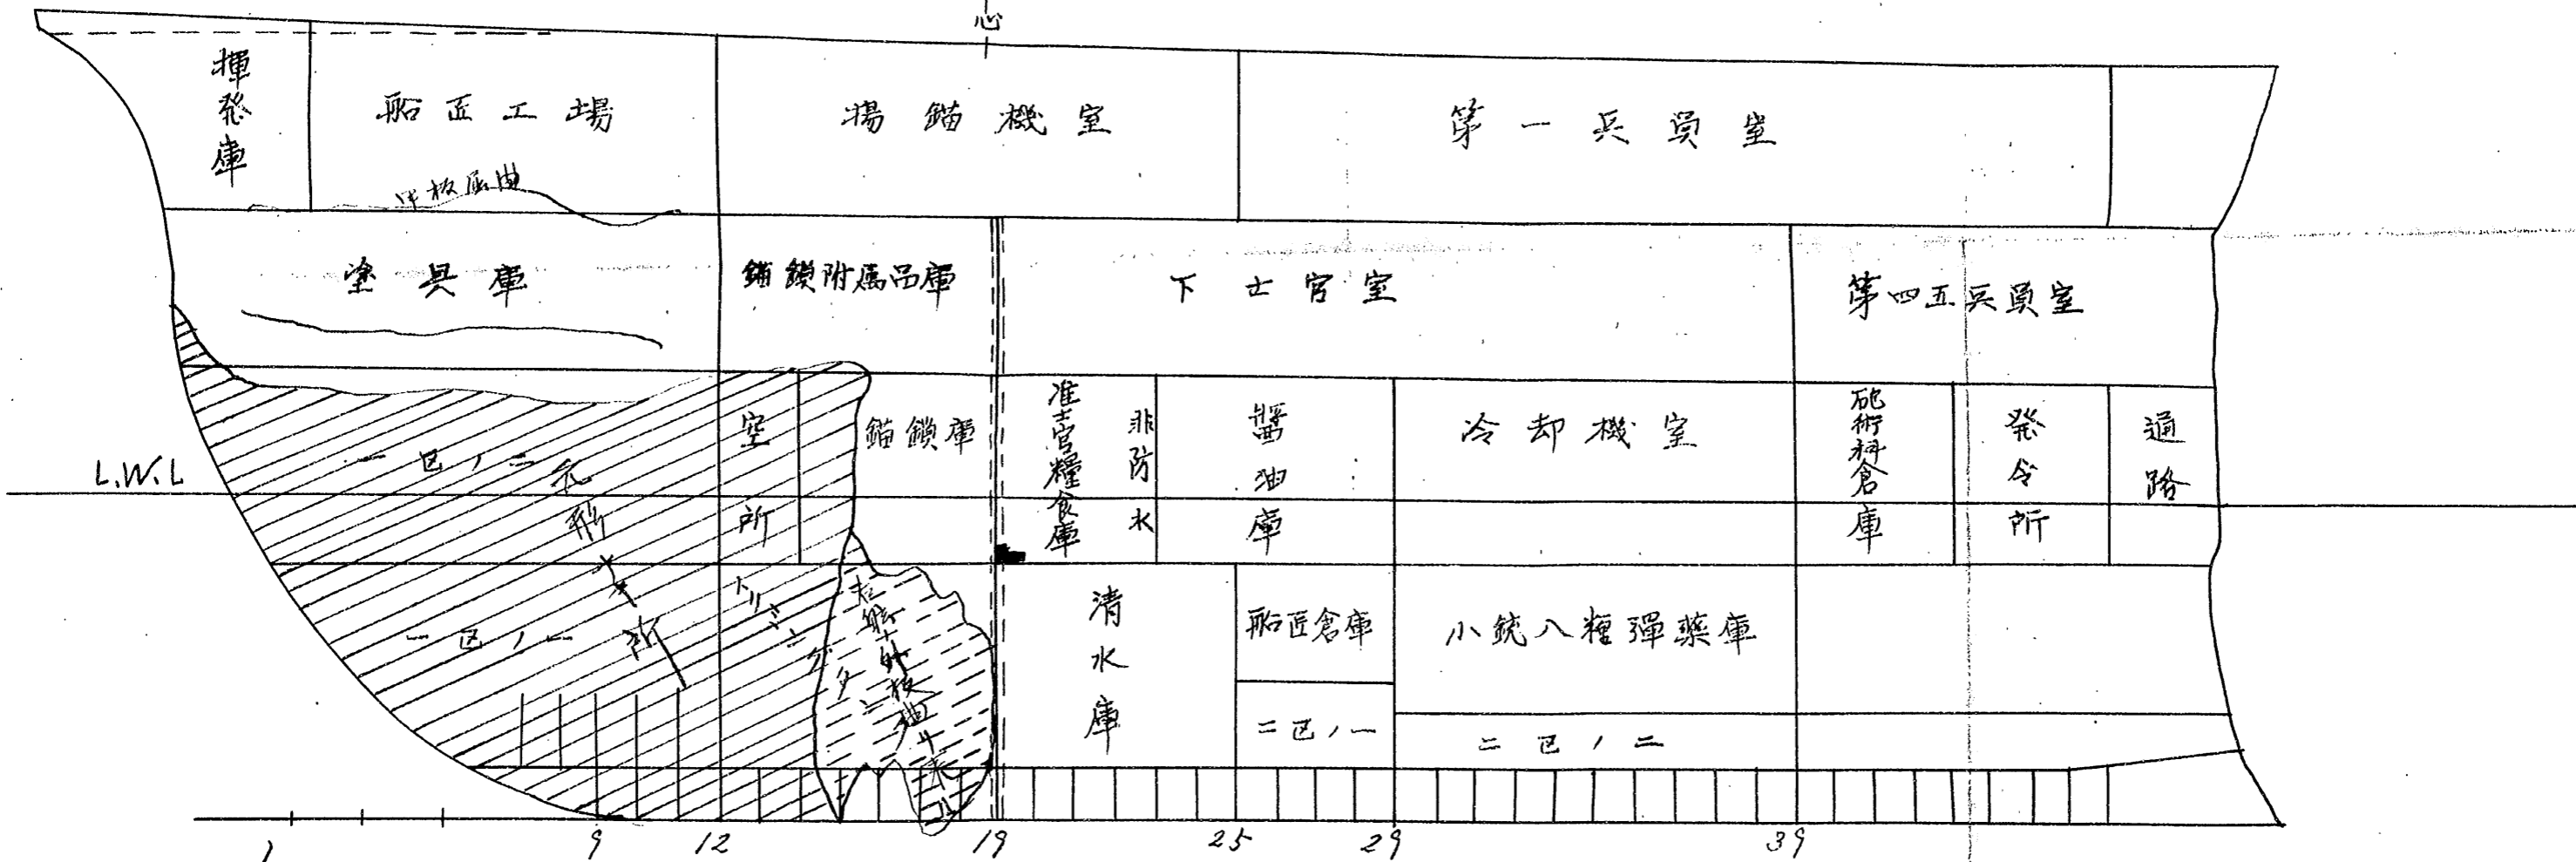 心
揮発庫
船匠工場
揚錨機室
第一兵員室
甲板屈曲
塗具庫
錨鎖附属品庫
下士官室
第四五兵員室
空所
錨鎖庫
准士官糧食庫
非防水
醤油庫
冷却機室
砲術科倉庫
発令所
通路
L.W.L
一区ノ二
一区ノ一
トリミングタンク
清水庫
船匠倉庫
小銃八糎弾薬庫
二区ノ一
二区ノ二
1
9
12
19
25
29
39